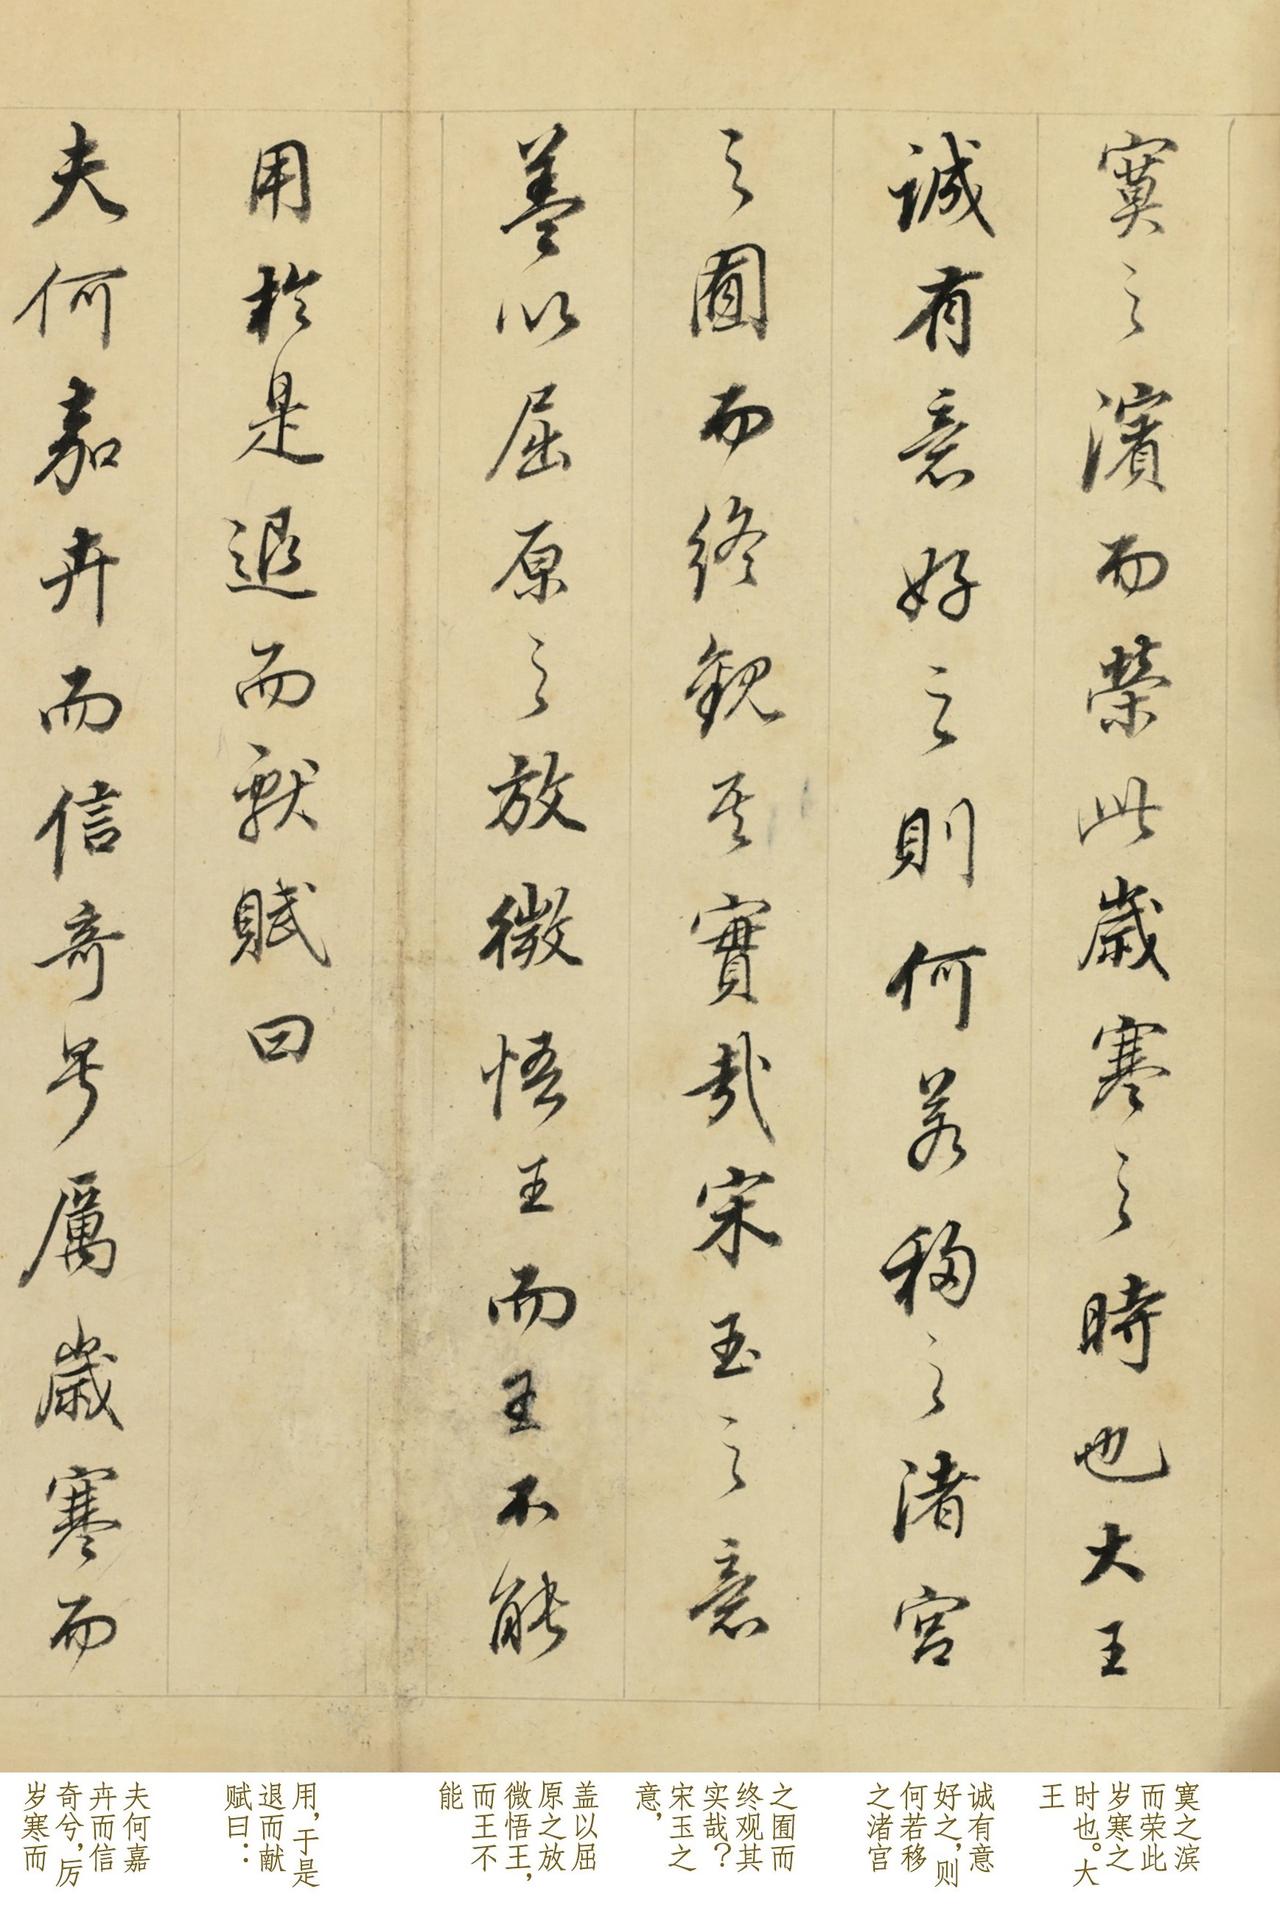 寞之濱而榮此歲寒之時也大王
誠有意好之則何若移之渚宮
之囿而終觀其實哉宋玉之意
蓋以屈原之放微悟王而王不能
用於是退而獻賦曰
夫何嘉卉而信奇兮厲歲寒而
寞之滨
而荣此
岁寒之
时也。大
王
诚有意
好之，则
何若移
之渚宫
之囿而
终观其
实哉？
宋玉之
意，
盖以屈
原之放
微悟王，
而王不
能
用，于是
退而献
赋曰：
夫何嘉
卉而信
奇兮，厉
岁寒而